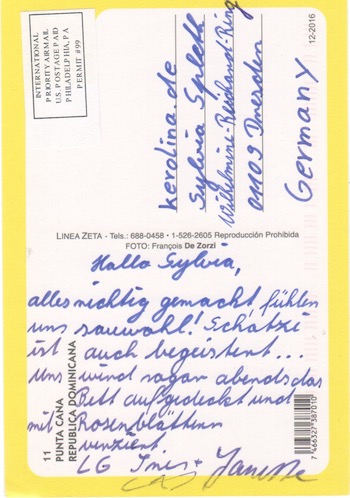 INTERNATIONAL
PRIORITY AIRMAIL
U.S. POSTAGE PAID
PHILADELPHIA, PA
PERMIT #99
12-2016
kerolina.de
Sylvia Spleth
Wilhelmine-Reichard-Ring
01109 Dresden
Germany
LINEA ZETA - Tels.: 688-0458 • 1-526-2605 Reproducción Prohibida
FOTO: François De Zorzi
Hallo Sylvia,
alles richtig gemacht fühlen
uns sauwohl! Schatzi
ist auch begeistert...
Uns wird sogar abends das
Bett aufgedeckt und
mit Rosenblättern
verziert.
LG Ines +
11
PUNTA CANA
REPUBLICA DOMINICANA
7 466327 387010